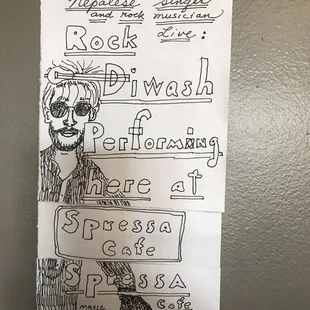 Nepalese singer
and rock musician
Rock Live:
Diwash
Performing
here at
Spressa
Cafe
Spressa
MUSIC Cafe